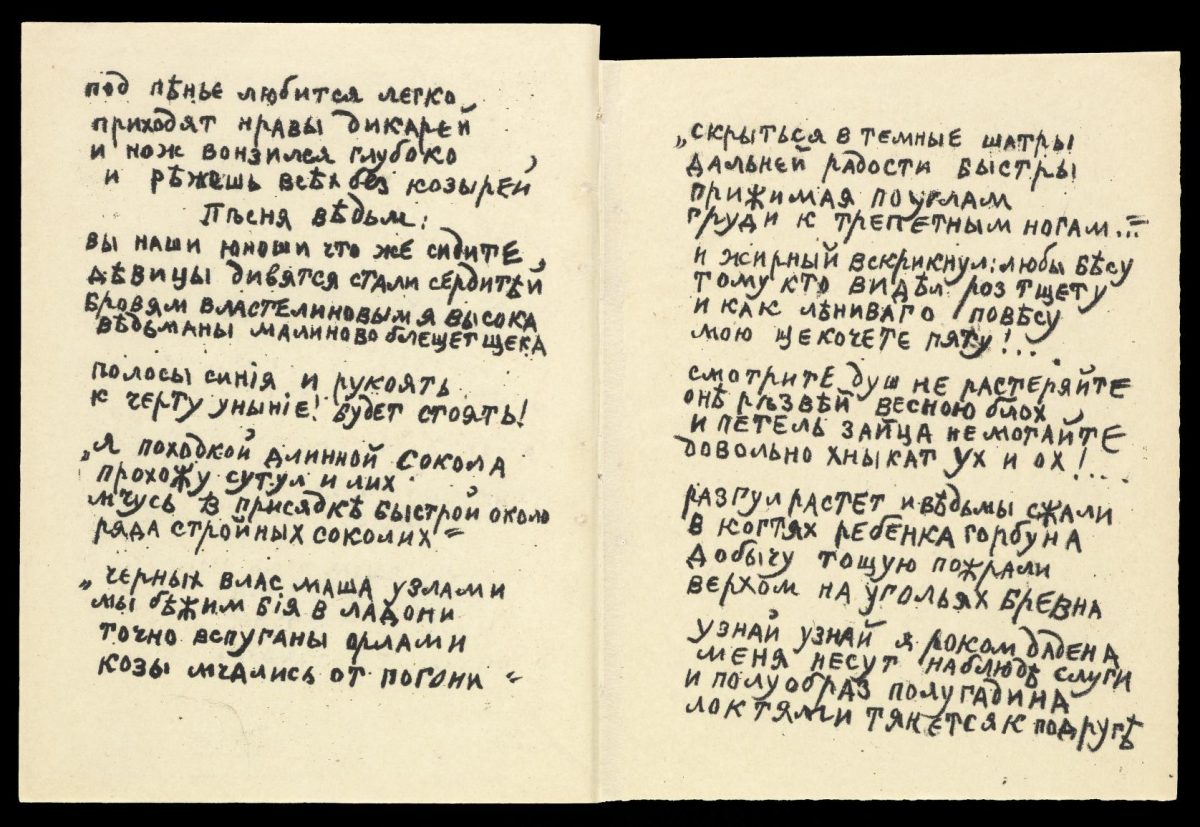 под пѣнье любится легко
приходят нравы дикарей
и нож вонзился глубоко
и рѣжешь всѣх без козырей
Пѣсня вѣдьм:
вы наши юноши что же сидите,
дѣвицы дивятся стали сердитѣй
бровям властелиновым я высока
вѣдьманы малиново блещет щека
полосы синiя и рукоять
к черту унынiе! будет стоять!
„я походкой длинной сокола
прохожу сутул и лих
мчусь в присядкѣ быстрой около
ряда стройных соколих"
„черных влас маша узлами
мы бѣжим бiя в ладони
точно вспуганы орлами
козы мчались от погони"
„скрыться в темные шатры
дальней радости быстры
прижимая по углам
груди к трепетным ногам..."
и жирный вскрикнул: любы бѣсу
тому кто видѣл роз тщету
и как лѣниваго повѣсу
мою щекочете пяту!...
смотрите душ не растеряйте
онѣ рѣзвѣй весною блох
и петель зайца не мотайте
довольно хныкат ух и ох!...
разгул растет и вѣдьмы сжали
в когтях ребенка горбуна
добычу тощую пожрали
верхом на угольях бревна
узнай узнай я роком дадена
меня несут на блюдѣ слуги
и полуобраз полугадина
локтями тянется к подругѣ